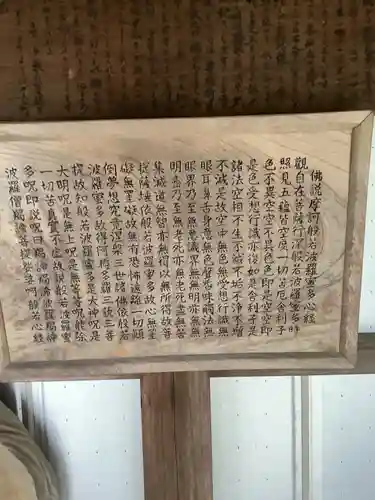 佛説摩訶般若波羅蜜多心経
観自在菩薩行深般若波羅蜜多時
照見五蘊皆空度一切苦厄舎利子
色不異空空不異色色即是空空即
是色受想行識亦復如是舎利子是
諸法空相不生不滅不垢不浄不増
不減是故空中無色無受想行識無
眼耳鼻舌身意無色聲香味觸法無
眼界乃至無意識界無無明亦無無
明盡乃至無老死亦無老死盡無苦
集滅道無智亦無得以無所得故菩
提薩埵依般若波羅蜜多故心無罣
礙無罣礙故無有恐怖遠離一切顛
倒夢想究竟涅槃三世諸佛依般若
波羅蜜多故得阿耨多羅三藐三菩
提故知般若波羅蜜多是大神呪是
大明呪是無上呪是無等等呪能除
一切苦真實不虚故説般若波羅蜜
多呪即説呪曰羯諦羯諦波羅羯諦
波羅僧羯諦菩提娑婆訶般若心経